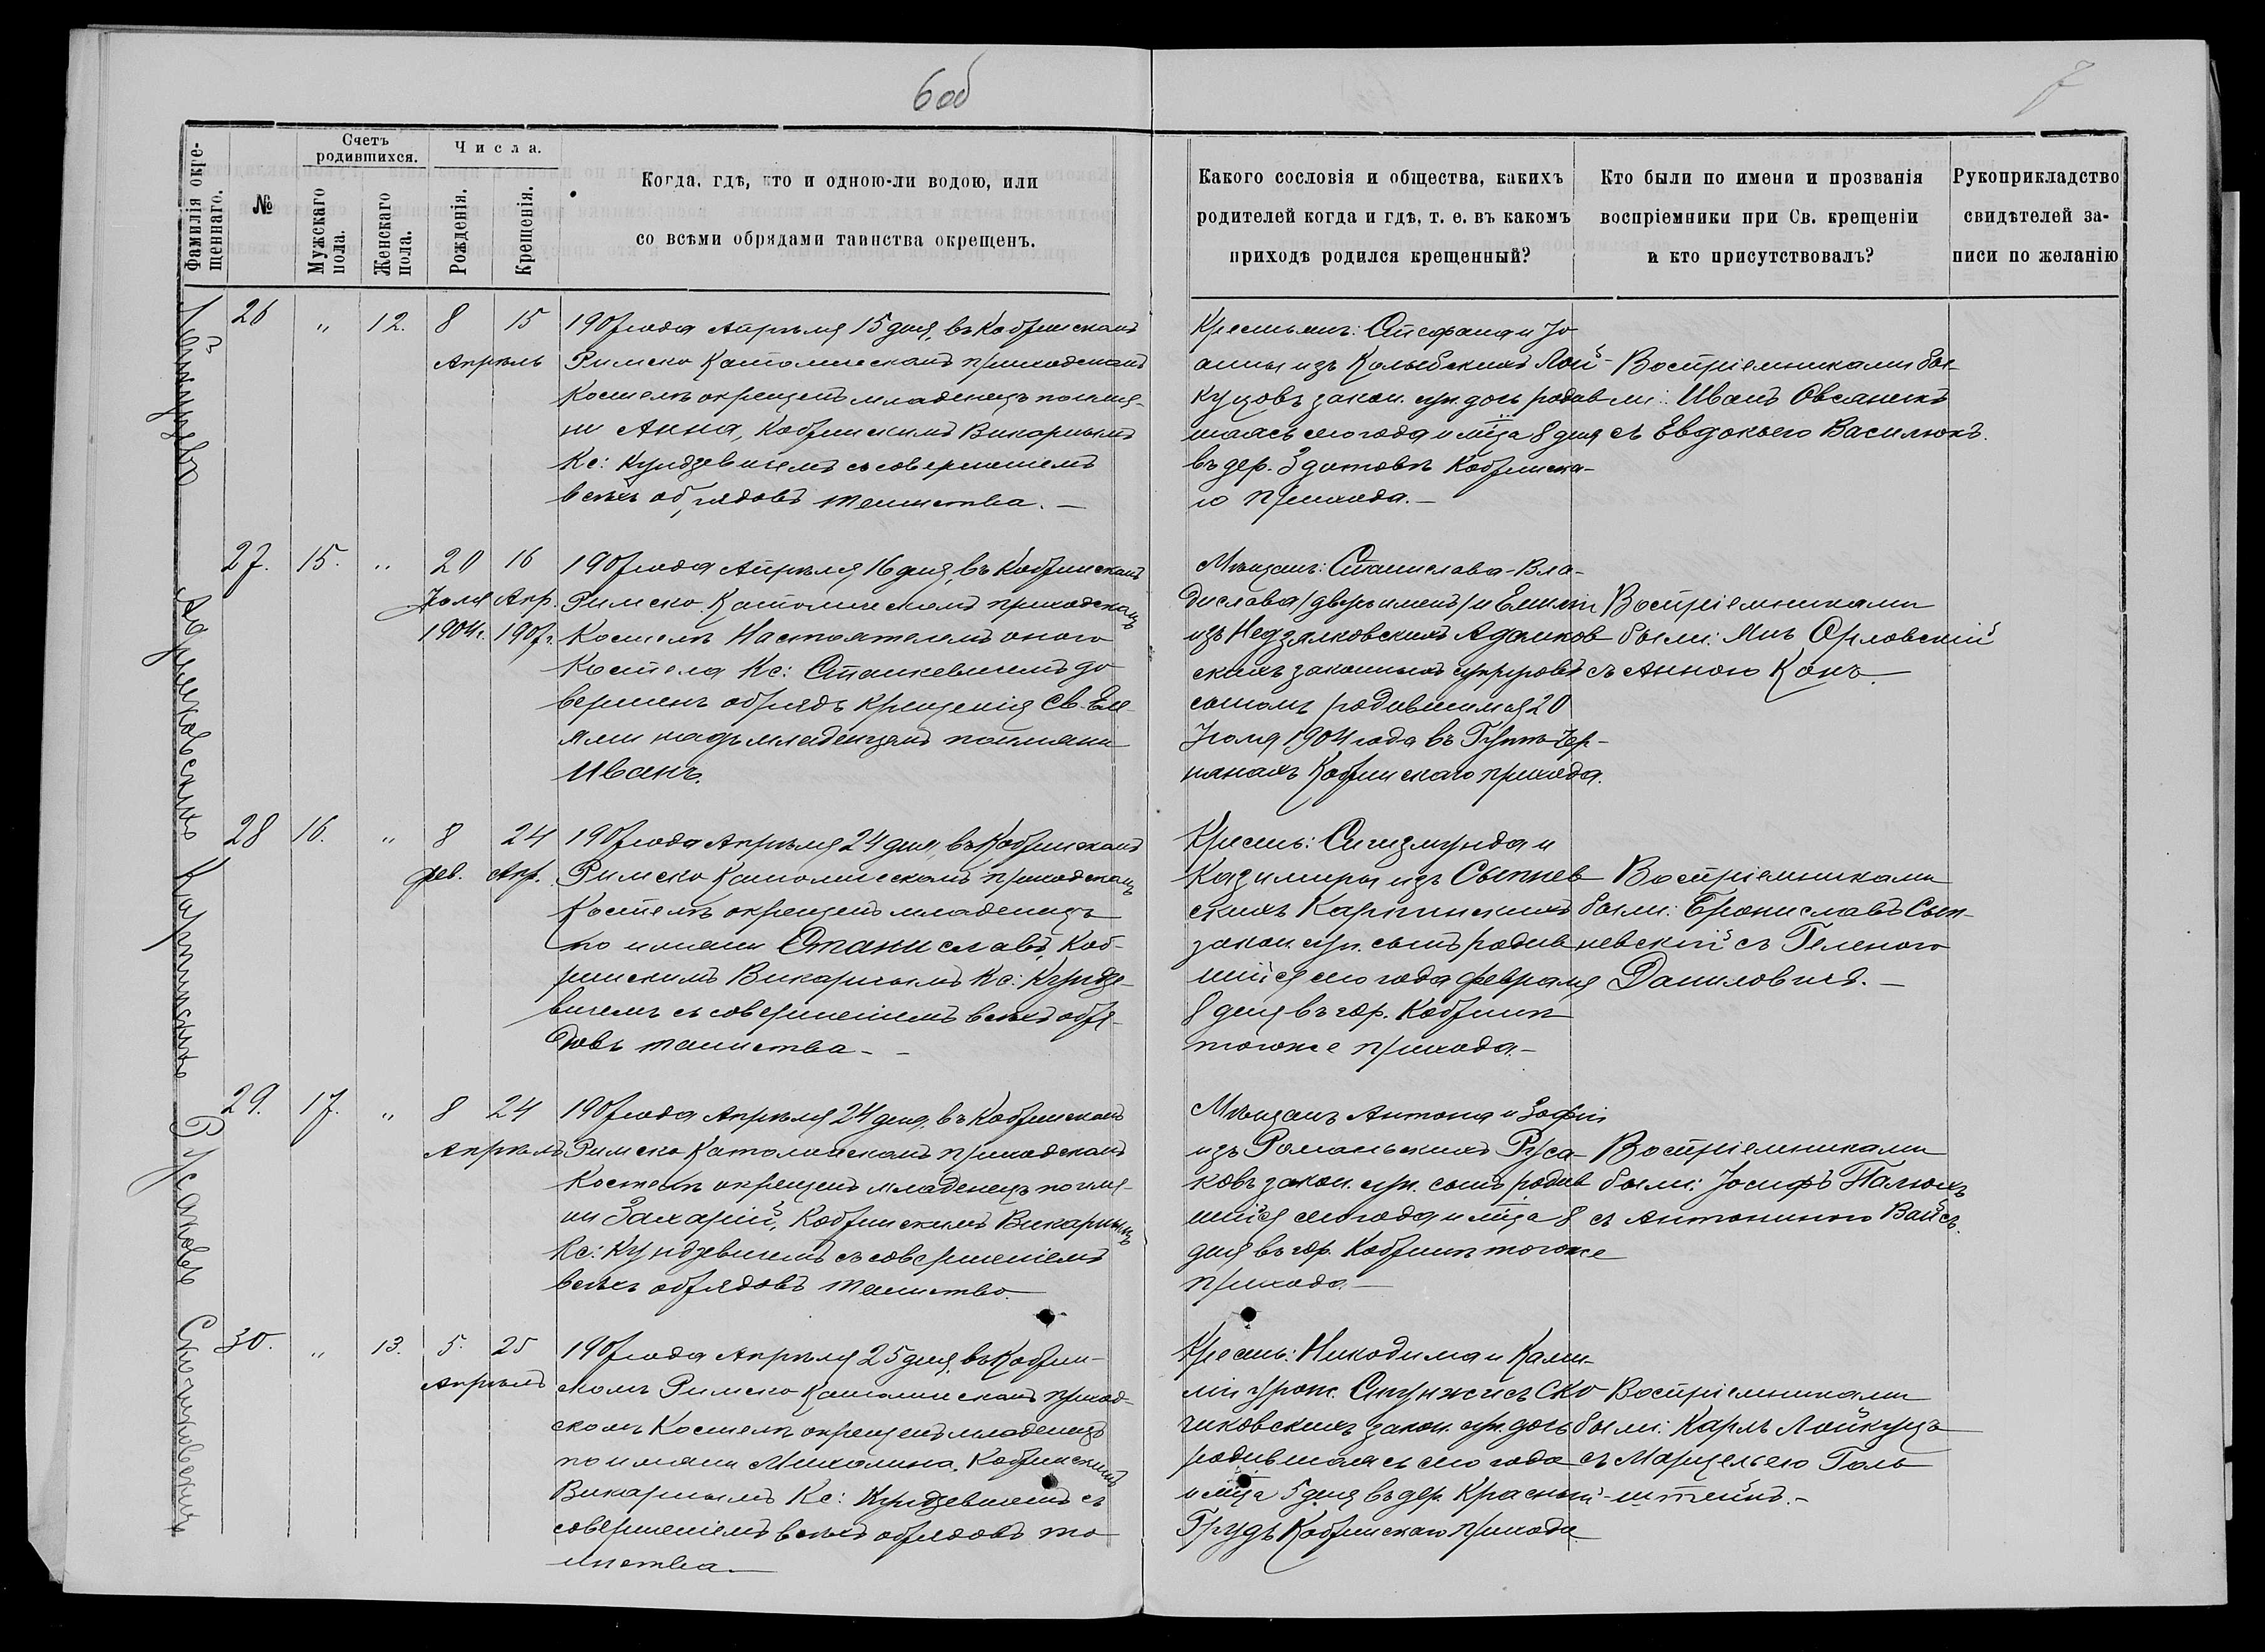 6об
7
Фамилія окре-
щеннаго.
№
Счетъ
родившихся.
Мужскаго
пола.
Женскаго
пола.
Числа.
Рожденія.
Крещенія.
Когда, гдѣ, кто и одною-ли водою, или
со всѣми обрядами таинства окрещенъ.
Какого сословія и общества, какихъ
родителей когда и гдѣ, т. е. въ какомъ
приходѣ родился крещенный?
Кто были по имени и прозванія
воспріемники при Св. крещеніи
и кто присутствовалъ?
Рукоприкладство
свидѣтелей за-
писи по желанію
Лойкуцовъ
26 " 12. 8 15
Апрѣль
1907 года Апрѣля 15 дня, въ Кобринскомъ
Римско Католическомъ приходскомъ
Костелѣ окрещенъ младенецъ по име-
ни Анна, Кобринскимъ Викарнымъ
Кс: Кундзевичемъ съ совершеніемъ
всѣхъ обрядовъ таинства. —
Крестьянъ: Стефана и Іо
анны изъ Колыбскихъ Лой-
куцовъ закон. супр. дочь родив
шаяся сего года и м-ца 8 дня
въ дер. Здитовѣ Кобринска-
го прихода. —
Воспріемниками бы-
ли: Иванъ Овсаникъ
съ Евдокьею Василюкъ.
27. 15. " 20 16
Іюля Апр.
1904 г. 1907 г.
1907 года Апрѣля 16 дня, въ Кобринскомъ
Римско Католическомъ приходскомъ
Костелѣ Настоятелемъ оного
Костела Кс: Станкевичемъ до
вершенъ обрядъ крещенія Св. Еле
ями надъ младенцемъ по имени
Иванъ.
Мѣщанъ: Станислава-Вла-
дислава /двухъ именъ/ и Емиліи
изъ Недзялковскихъ Адамков
скихъ законныхъ супруговъ
сыномъ родившимся 20
Іюля 1904 года въ
Кобринскаго прихода.
Воспріемниками
были: Янъ Орловскій
съ Анною Конъ.
Карпинскихъ
28 16. " 8 24
фев. Апр.
1907 года Апрѣля 24 дня, въ Кобринскомъ
Римско Католическомъ приходскомъ
Костелѣ окрещенъ младенецъ
по имени Станиславъ, Коб-
ринскимъ Викарнымъ Кс: Кундзе-
вичемъ съ совершеніемъ всѣхъ обря-
довъ таинства - -
Крестьянъ: Сигизмунда и
Казимиры изъ Сыпнев
скихъ Карпинскихъ
закон. супр. сынъ родив
шійся сего года февраля
8 дня въ гор. Кобринѣ
тогоже прихода. —
Воспріемниками
были: Брониславъ Сып-
невскій съ Геленою
Даниловичъ. —
Русаковъ
29. 17. " 8 24
Апрѣль
1907 года Апрѣля 24 дня, въ Кобринскомъ
Римско Католическомъ приходскомъ
Костелѣ окрещенъ младенецъ по име-
ни Захарій, Кобринскимъ Викарнымъ
Кс: Кундзевичемъ съ совершеніемъ
всѣхъ обрядовъ таинства.
Мѣщанъ Антона и Зофіи
изъ Романьскихъ Руса-
ковъ закон. супр. сынъ родив
шійся сего года и м-ца 8
дня въ гор. Кобринѣ тогоже
прихода. —
Воспріемниками
были: Іосифъ Палюхъ
съ Антониною Вайсъ.
Скочиковскихъ
30. " 13. 5. 25
Апрѣль
1907 года Апрѣля 25 дня, въ Кобрин-
скомъ Римско Католическомъ приход-
скомъ Костелѣ окрещенъ младенецъ
по имени Михалина, Кобринскимъ
Викарнымъ Кс: Кундзевичемъ съ
совершеніемъ всѣхъ обрядовъ та
инства —
Крестьянъ: Никодима и Ками-
ліи урож. Ско
чиковскихъ закон. супр. дочь
родившаяся сего года
и м-ца 5 дня въ дер. Красный
Груд Кобринскаго прихода
Воспріемниками
были: Карлъ Лойкуцъ
съ Марцельею Голь
штейнъ. —